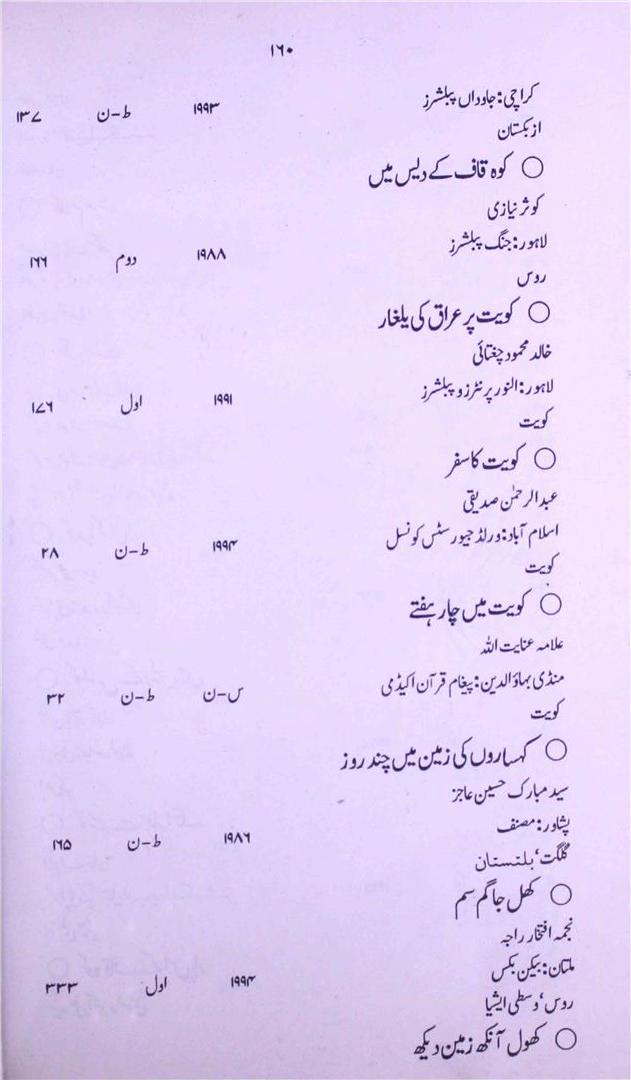 ۱۶۰
کراچی: جاوداں پبلشرز ۱۹۹۳ ط-ن ۱۳۷
ازبکستان
○ کوہ قاف کے دیس میں
کوثر نیازی
لاہور: جنگ پبلشرز ۱۹۸۸ دوم ۱۶۶
روس
○ کویت پر عراق کی یلغار
خالد محمود چغتائی
لاہور: النور پرنٹرز و پبلشرز ۱۹۹۱ اول ۱۷۶
کویت
○ کویت کا سفر
عبدالرحمٰن صدیقی
اسلام آباد: ورلڈ جیورسٹس کونسل ۱۹۹۴ ط-ن ۲۸
کویت
○ کویت میں چار ہفتے
علامہ عنایت اللہ
منڈی بہاؤالدین: پیغام قرآن اکیڈمی س-ن ط-ن ۳۲
کویت
○ کہساروں کی زمین میں چند روز
سید مبارک حسین عاجز
پشاور: مصنف ۱۹۸۶ ط-ن ۱۶۵
گلگت، بلتستان
○ کھل جا گم سم
نجمہ افتخار راجہ
ملتان: بیکن بکس ۱۹۹۴ اول ۳۳۳
روس، وسطی ایشیا
○ کھول آنکھ زمین دیکھ